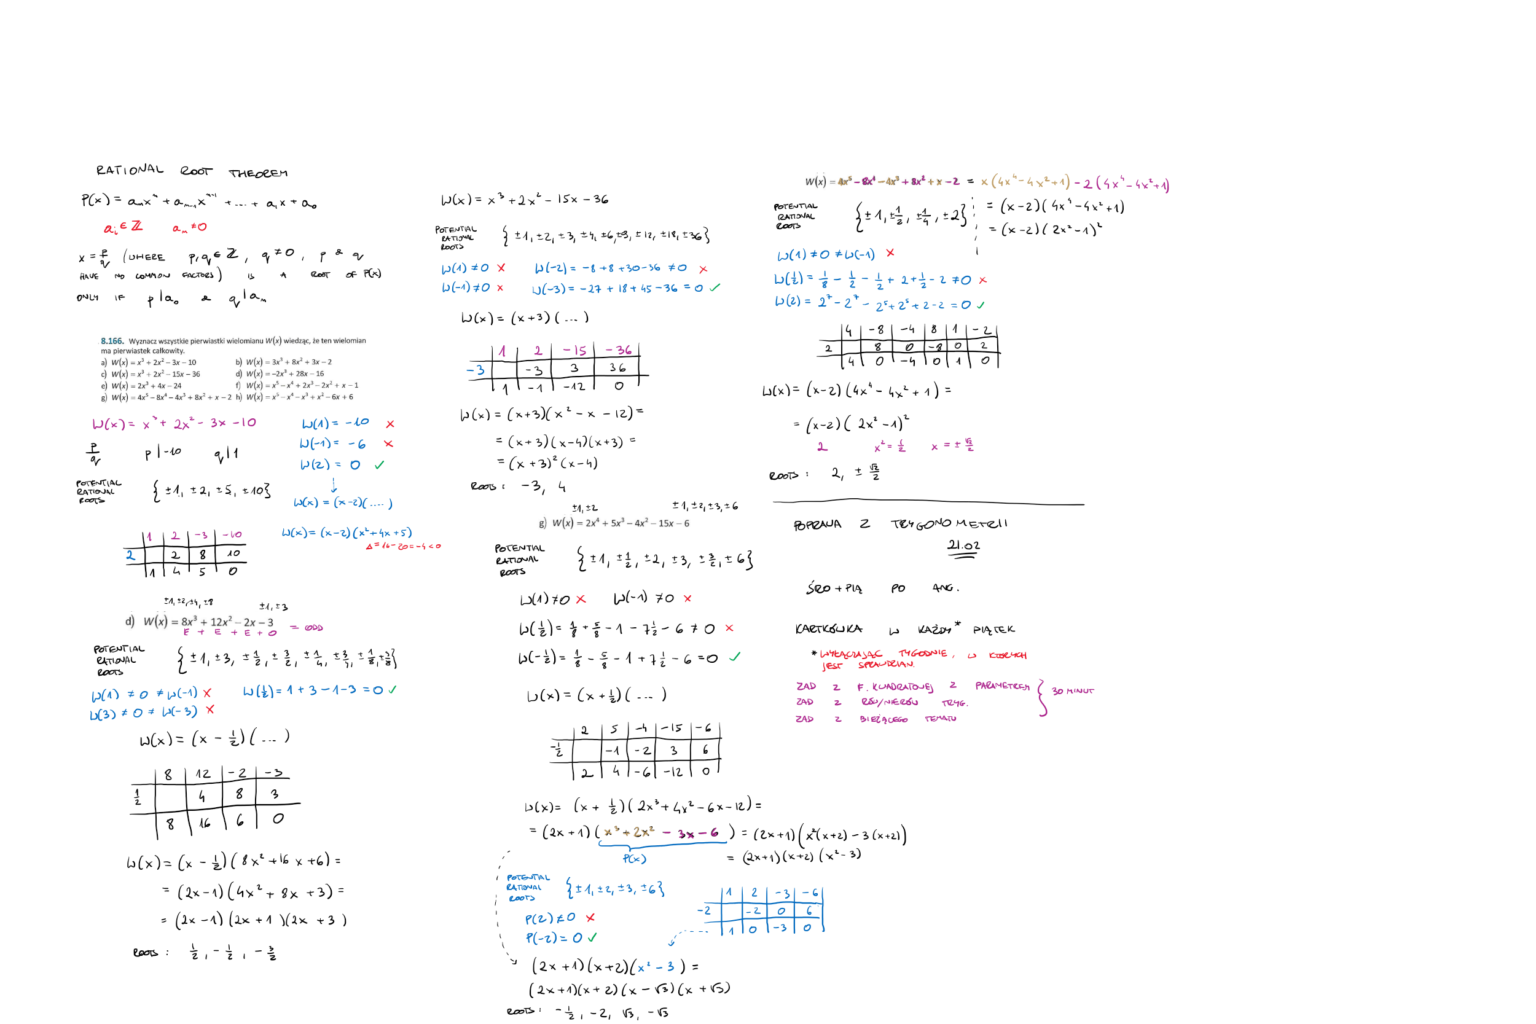 RATIONAL ROOT THEOREM
P(x) = aₙxⁿ + aₙ₋₁xⁿ⁻¹ + ... + a₁x + a₀
aᵢ ∈ ℤ aₙ ≠ 0
x = p/q (WHERE p,q ∈ ℤ, q ≠ 0, p & q
HAVE NO COMMON FACTORS) IS A ROOT OF P(x)
ONLY IF p | a₀ & q | aₙ
8.166. Wyznacz wszystkie pierwiastki wielomianu W(x) wiedząc, że ten wielomian
ma pierwiastek całkowity.
a) W(x) = x³ + 2x² − 3x − 10 b) W(x) = 3x³ + 8x² + 3x − 2
c) W(x) = x³ + 2x² − 15x − 36 d) W(x) = −2x³ + 28x − 16
e) W(x) = 2x³ + 4x − 24 f) W(x) = x⁵ − x⁴ + 2x³ − 2x² + x − 1
g) W(x) = 4x⁵ − 8x⁴ − 4x³ + 8x² + x − 2 h) W(x) = x⁵ − x⁴ − x³ + x² − 6x + 6
W(x) = x³ + 2x² − 3x − 10
p/q p | −10 q | 1
POTENTIAL
RATIONAL
ROOTS
{±1, ±2, ±5, ±10}
W(1) = −10 ✗
W(−1) = −6 ✗
W(2) = 0 ✓
↓
W(x) = (x−2)(....)
1 2 −3 −10
2 2 8 10
1 4 5 0
W(x) = (x−2)(x² + 4x + 5)
Δ = 16 − 20 = −4 < 0
±1, ±2, ±4, ±8 ±1, ±3
d) W(x) = 8x³ + 12x² − 2x − 3
E + E + E + O = ODD
POTENTIAL
RATIONAL
ROOTS
{±1, ±3, ±1/2, ±3/2, ±1/4, ±3/4, ±1/8, ±3/8}
W(1) ≠ 0 ≠ W(−1) ✗ W(1/2) = 1 + 3 − 1 − 3 = 0 ✓
W(3) ≠ 0 ≠ W(−3) ✗
W(x) = (x − 1/2)(...)
8 12 −2 −3
1/2 4 8 3
8 16 6 0
W(x) = (x − 1/2)(8x² + 16x + 6) =
= (2x − 1)(4x² + 8x + 3) =
= (2x − 1)(2x + 1)(2x + 3)
ROOTS: 1/2, −1/2, −3/2
W(x) = x³ + 2x² − 15x − 36
POTENTIAL
RATIONAL
ROOTS
{±1, ±2, ±3, ±4, ±6, ±9, ±12, ±18, ±36}
W(1) ≠ 0 ✗ W(−2) = −8 + 8 + 30 − 36 ≠ 0 ✗
W(−1) ≠ 0 ✗ W(−3) = −27 + 18 + 45 − 36 = 0 ✓
W(x) = (x+3)(...)
1 2 −15 −36
−3 −3 3 36
1 −1 −12 0
W(x) = (x+3)(x² − x − 12) =
= (x+3)(x−4)(x+3) =
= (x+3)²(x−4)
ROOTS: −3, 4
±1, ±2 ±1, ±2, ±3, ±6
g) W(x) = 2x⁴ + 5x³ − 4x² − 15x − 6
POTENTIAL
RATIONAL
ROOTS
{±1, ±1/2, ±2, ±3, ±3/2, ±6}
W(1) ≠ 0 ✗ W(−1) ≠ 0 ✗
W(1/2) = 1/8 + 5/8 − 1 − 7 1/2 − 6 ≠ 0 ✗
W(−1/2) = 1/8 − 5/8 − 1 + 7 1/2 − 6 = 0 ✓
W(x) = (x + 1/2)(...)
2 5 −4 −15 −6
−1/2 −1 −2 3 6
2 4 −6 −12 0
W(x) = (x + 1/2)(2x³ + 4x² − 6x − 12) =
= (2x+1)(x³ + 2x² − 3x − 6) = (2x+1)(x²(x+2) − 3(x+2))
P(x) = (2x+1)(x+2)(x²−3)
POTENTIAL
RATIONAL
ROOTS
{±1, ±2, ±3, ±6}
P(2) ≠ 0 ✗
P(−2) = 0 ✓
1 2 −3 −6
−2 −2 0 6
1 0 −3 0
(2x+1)(x+2)(x² − 3) =
(2x+1)(x+2)(x − √3)(x + √3)
ROOTS: −1/2, −2, √3, −√3
W(x) = 4x⁵ − 8x⁴ − 4x³ + 8x² + x − 2 = x(4x⁴ − 4x² + 1) − 2(4x⁴ − 4x² + 1)
= (x−2)(4x⁴ − 4x² + 1)
= (x−2)(2x² − 1)²
POTENTIAL
RATIONAL
ROOTS
{±1, ±1/2, ±1/4, ±2}
W(1) ≠ 0 ≠ W(−1) ✗
W(1/2) = 1/8 − 1/2 − 1/2 + 2 + 1/2 − 2 ≠ 0 ✗
W(2) = 2⁷ − 2⁷ − 2⁵ + 2⁵ + 2 − 2 = 0 ✓
4 −8 −4 8 1 −2
2 8 0 −8 0 2
4 0 −4 0 1 0
W(x) = (x−2)(4x⁴ − 4x² + 1) =
= (x−2)(2x² − 1)²
2 x² = 1/2 x = ± √2/2
ROOTS: 2, ± √2/2
POPRAWA Z TRYGONOMETRII
21.02
ŚRO + PIĄ PO ANG.
KARTKÓWKA W KAŻDY* PIĄTEK
* WYŁĄCZAJĄC TYGODNIE, W KTÓRYCH
JEST SPRAWDZIAN
ZAD Z F. KWADRATOWEJ Z PARAMETREM
ZAD Z RÓW/NIERÓW TRYG. } 30 MINUT
ZAD Z BIEŻĄCEGO TEMATU